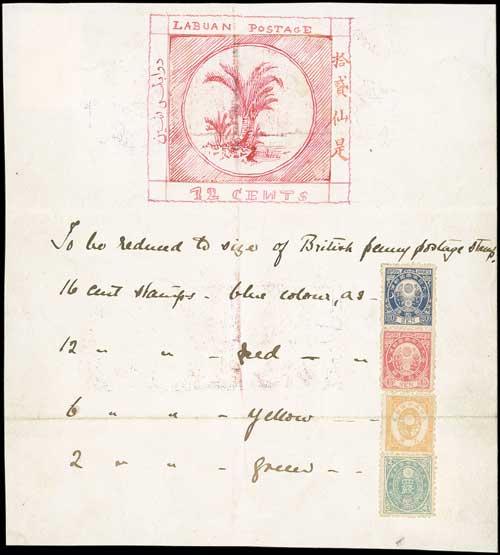 LABUAN POSTAGE
拾貳仙是
12 CENTS
To be reduced to size of British penny postage stamp.
16 cent stamps - blue colour, as -
12 " " - red - "
6 " " - yellow - -
2 " " - green - -
SEN
SEN